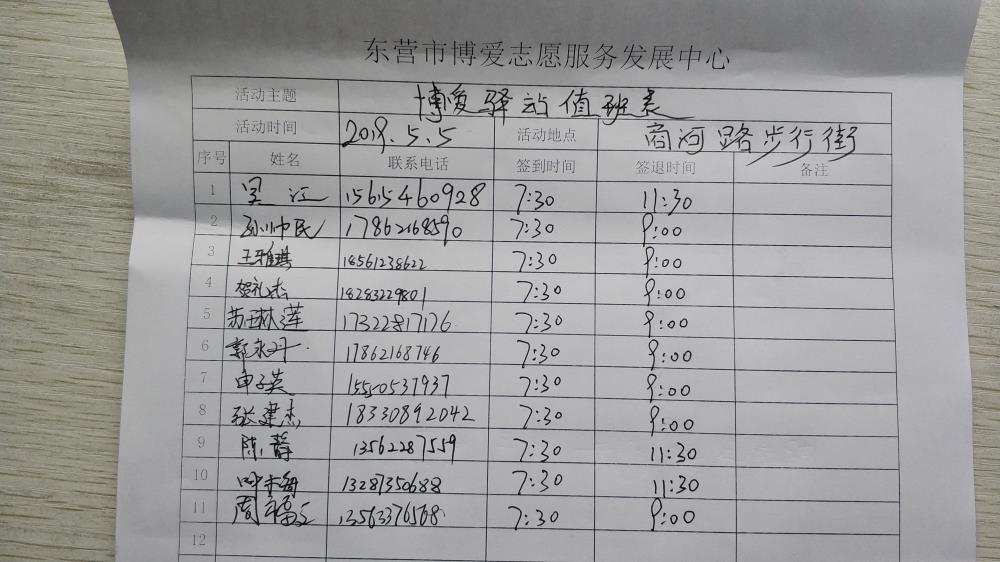 东营市博爱志愿服务发展中心
活动主题 博爱驿站值班表
活动时间 2019.5.5 活动地点 商河路步行街
序号 姓名 联系电话 签到时间 签退时间 备注
1 吴江 15615460928 7:30 11:30
2 孙帅民 17862168590 7:30 9:00
3 王雅琪 18561238622 7:30 9:00
4 贺礼杰 18283229801 7:30 9:00
5 苏琳莲 17322817176 7:30 9:00
6 郭永丹 17862168746 7:30 9:00
7 申子英 15550537937 7:30 9:00
8 张建杰 18330892042 7:30 9:00
9 陈静 13562287559 7:30 11:30
10 13287350688 7:30 11:30
11 周福 13563376568 7:30 9:00
12